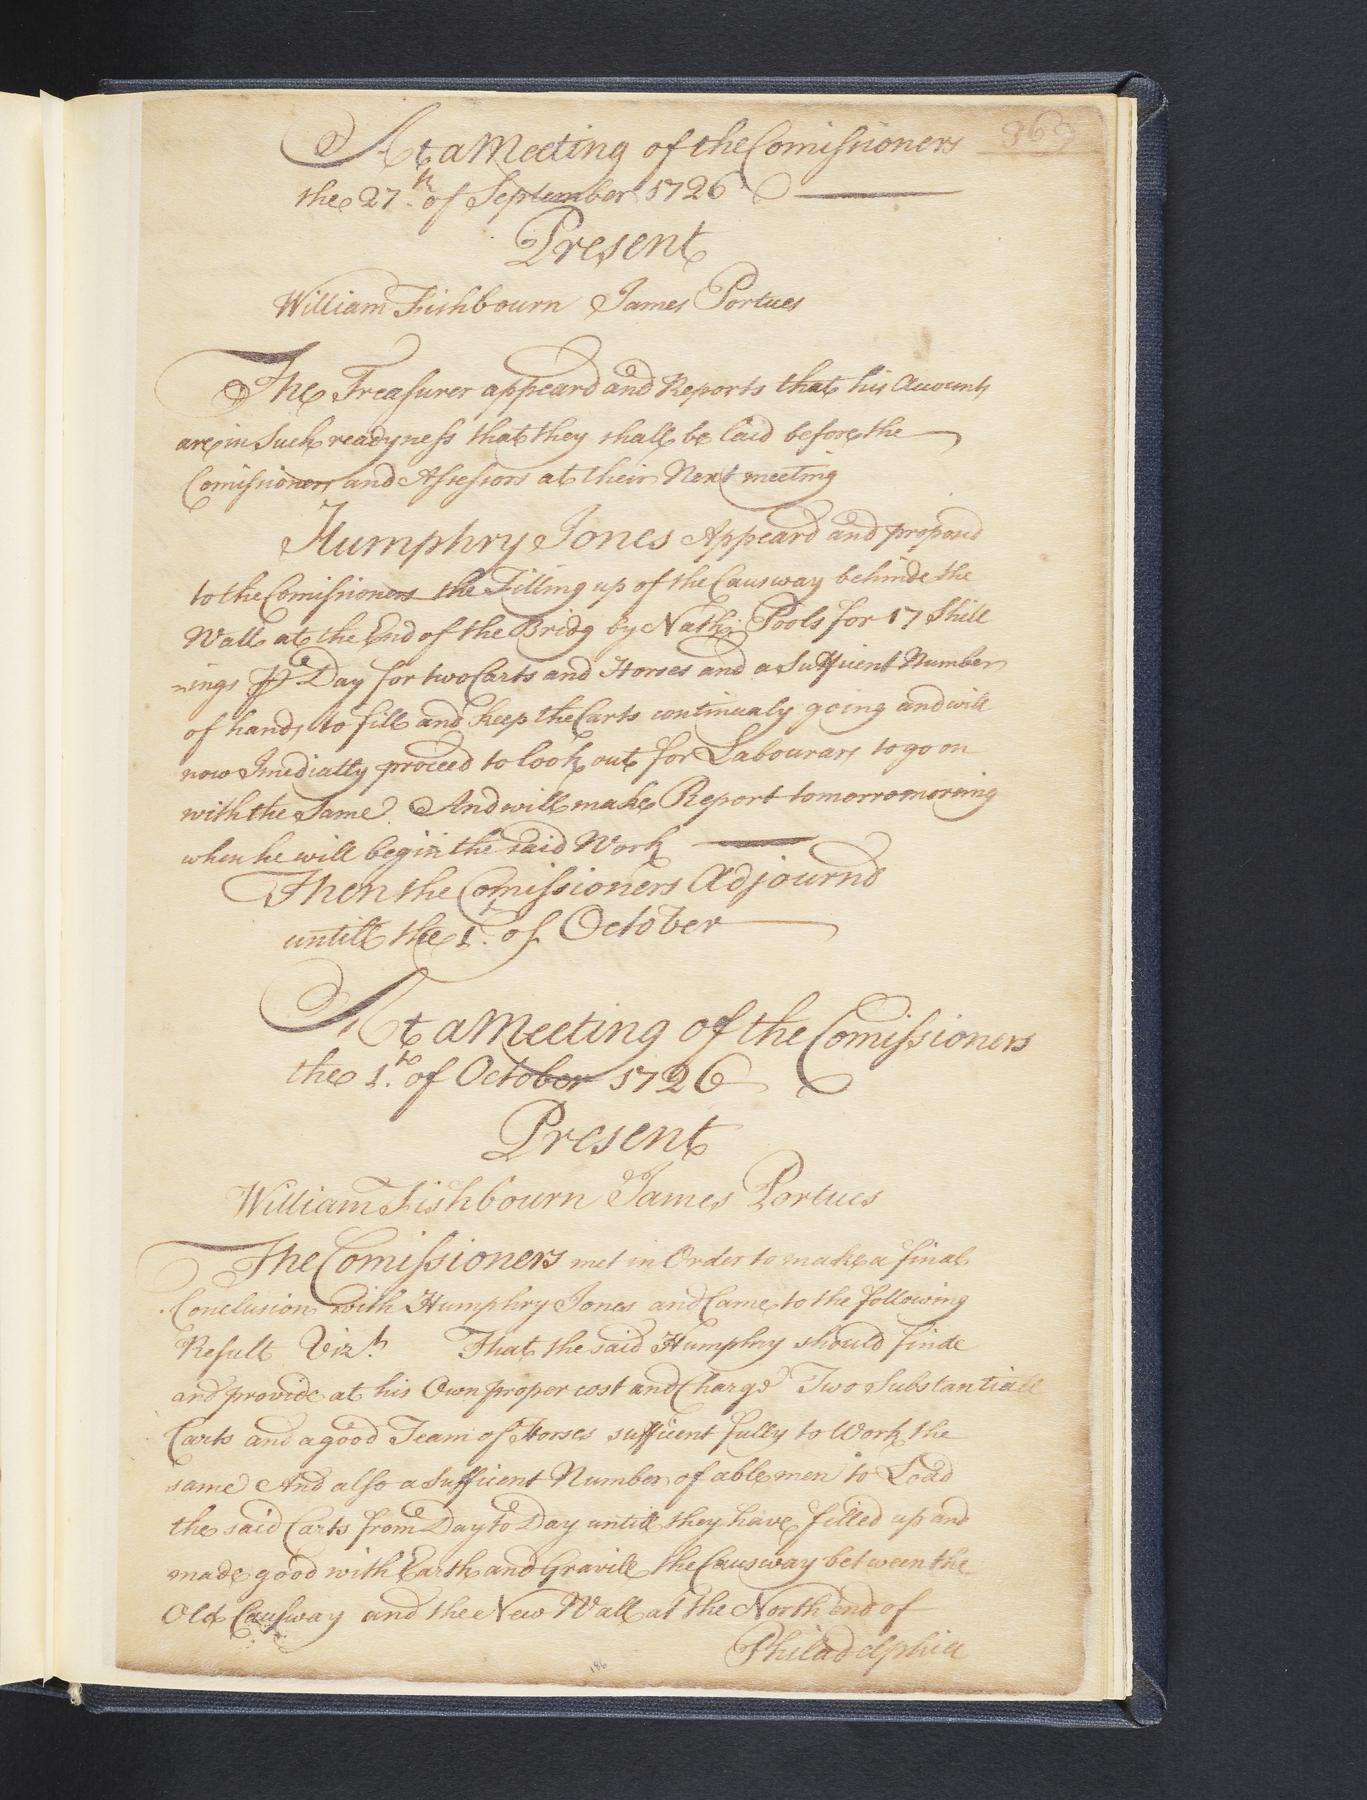 369
At a Meeting of the Comissioners
the 27th. of September 1726
Present
William Fishbourn James Portues
The Treasurer appeard and Reports that his Acounts
are in Such readyness that they shall be laid before the
Comissioners and Assessors at their Next meeting
Humphry Jones Appeard and proposd
to the Comissioners the Filling up of the Causway behinde the
Wall at the End of the Bridg by Nathl: Pools for 17 Shill
-ings ⅌ Day for two Carts and Horses and a Sufficent Number
of hands to fill and keep the Carts continualy going and will
now Imediatly proceed to look out for Labourars to go on
with the Same. And will make Report tomorro morning
when he will begin the said Work
Then the Comissioners Adjournd
untill the 1t. of October
At a Meeting of the Comissioners
the 1.to of October 1726
Present
William Fishbourn James Portues
The Comissioners met in Order to make a final
Conclusion with Humphry Jones and Came to the following
Result Vizt. That the said Humphry should finde
and provide at his Own proper cost and Charge Two Substantiall
Carts and a good Team of Horses sufficent fully to Work the
same And also a Sufficent Number of able men to Load
the said Carts from Day to Day untill they have filled up and
made good with Earth and Gravill the Causway between the
Old Causway and the New Wall at the North end of
Philadelphia
186